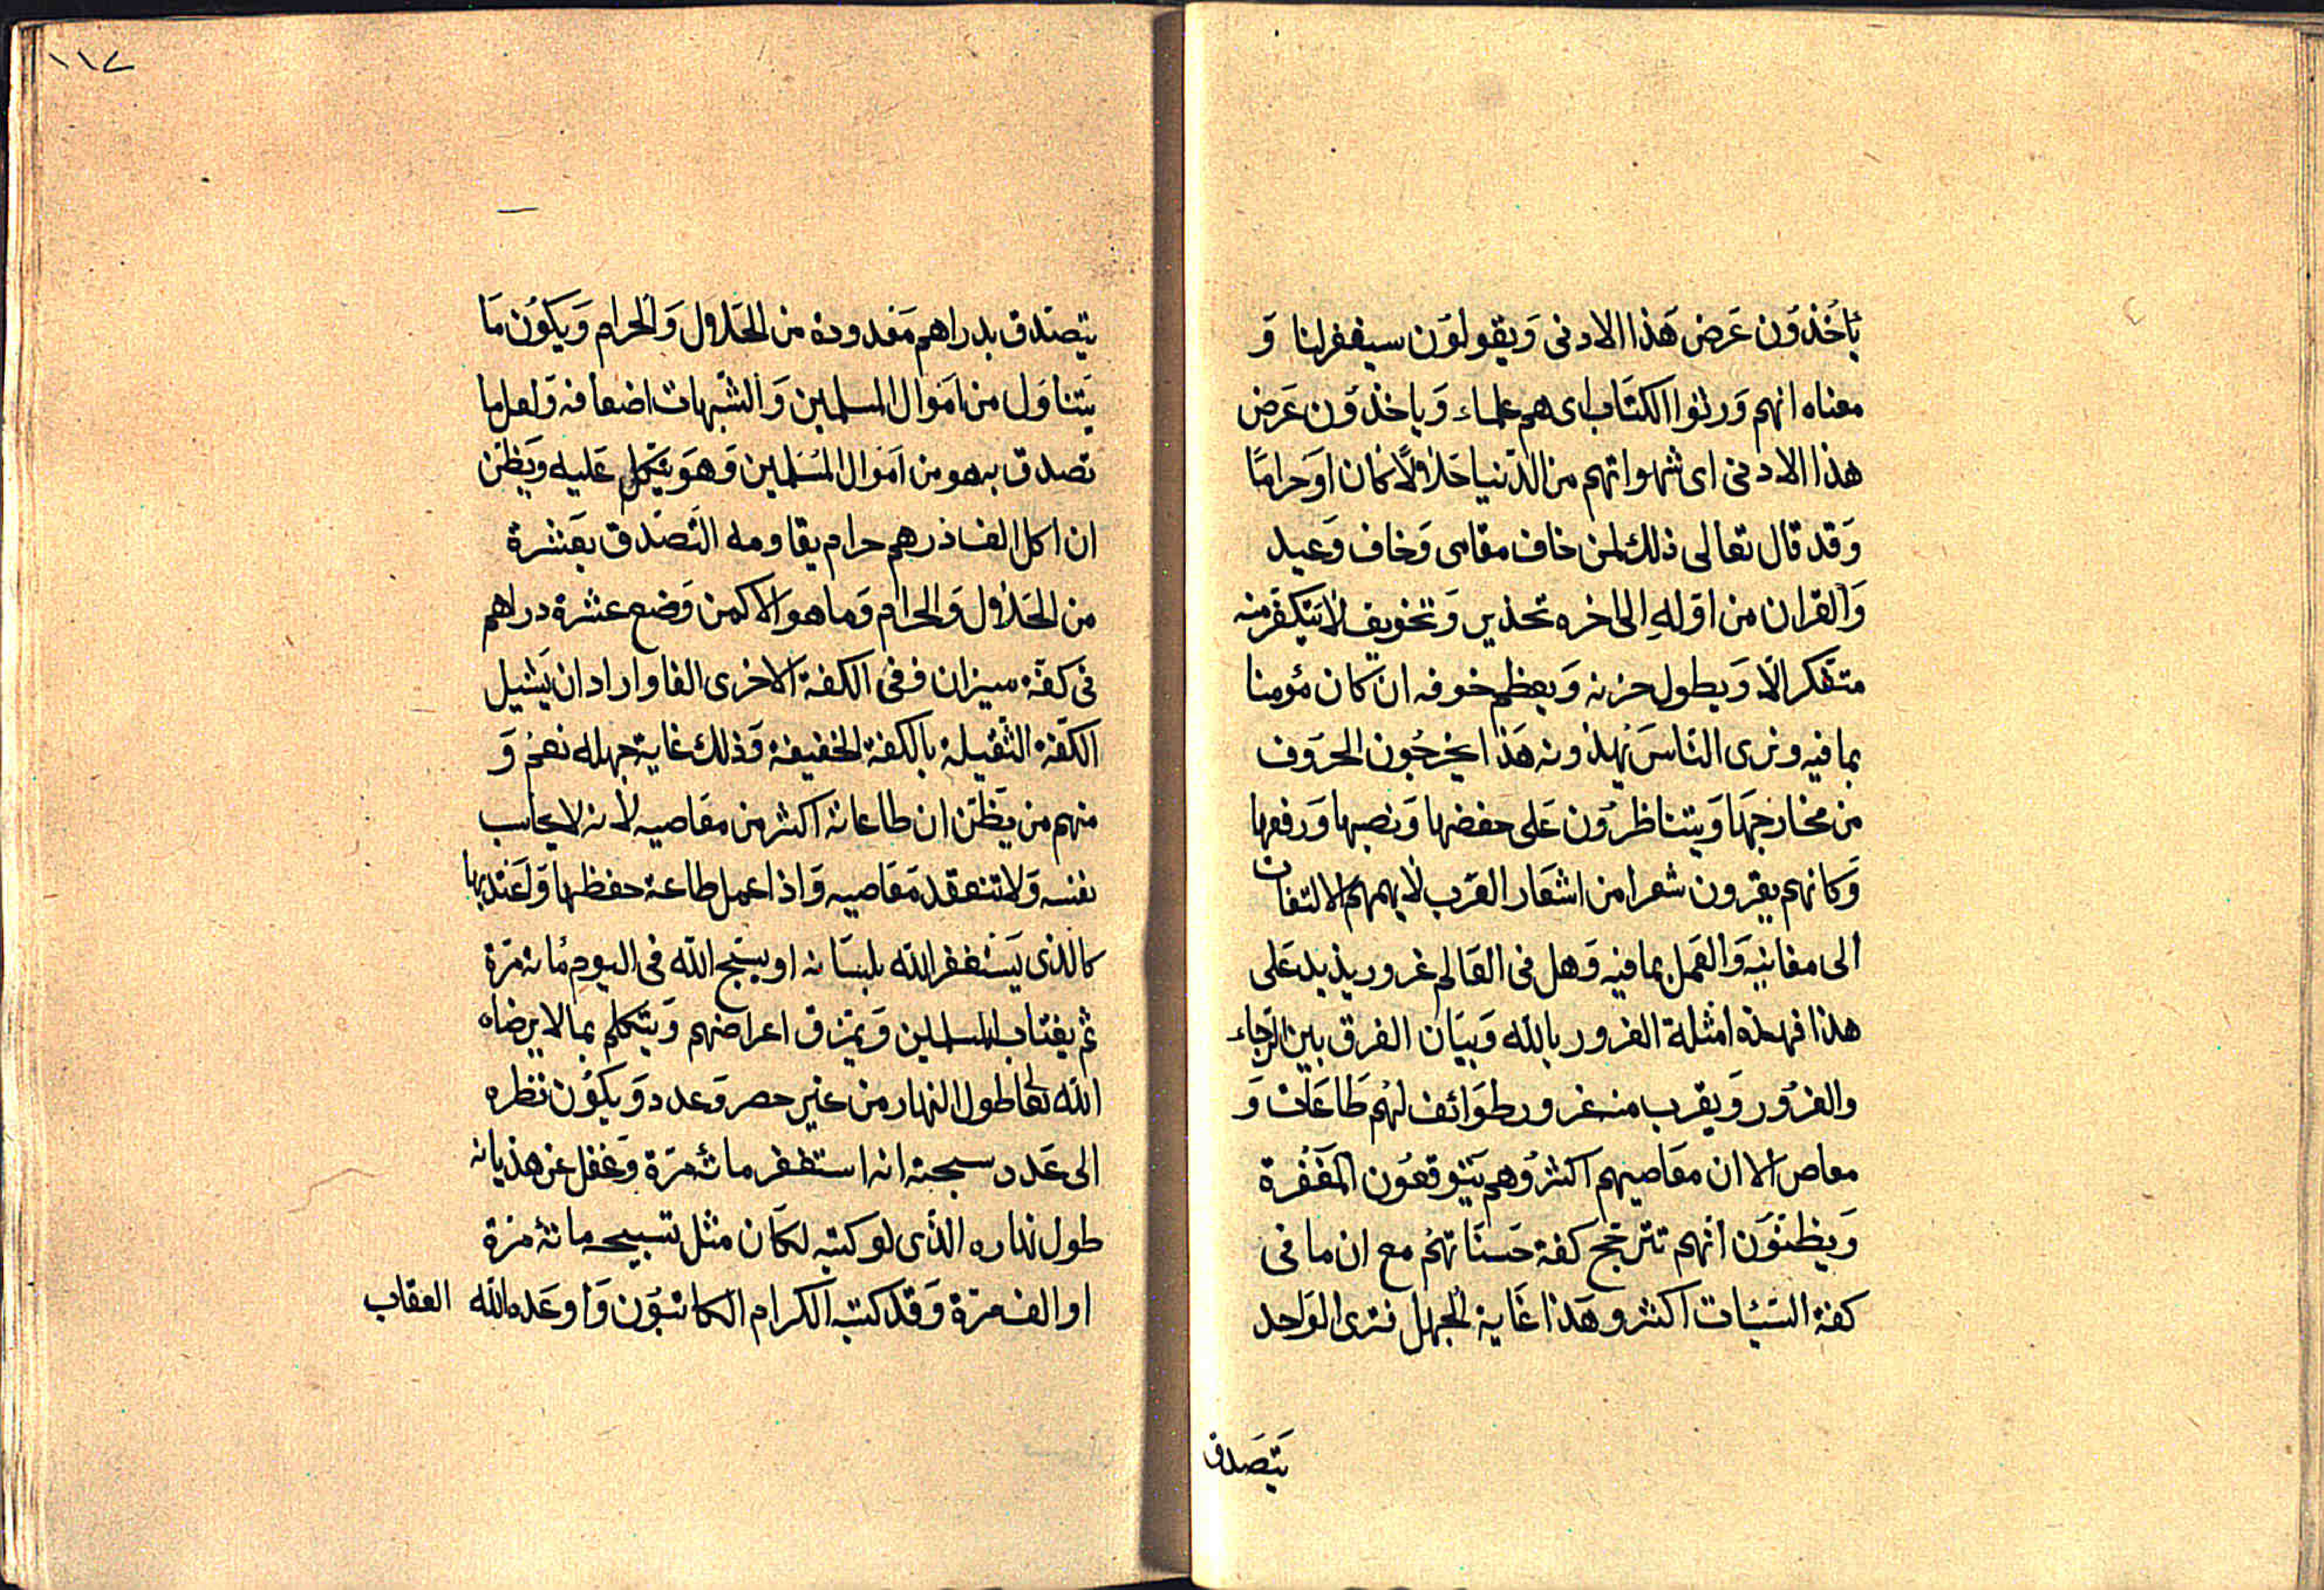 يَأخُذُوَن عَرَض هَذا الادنى وَيقولوَن سيغفرلنا وَ
معناه انهم وَرثوا الكتَاب اى هم علماء وَياخذوَن عَرَض
هذا الادنى اى شهواتهم من الدّنيا حَلالًا كان اوَحرامًا
وَقد قال تعالى ذلك لمن خاف مقامى وَخاف وَعيد
وَالقران من اوّلهِ الى اخره تحذير وَتخويف لا يَتفكر منه
متفكر الّا وَيطول حزنه وَيعظم خوفه ان كان مؤمنا
بما فيه ونرى النّاسَ يهذونه هَذا يخرجُون الحرَوف
من مخارجهَا وَيتناظرُون عَلى خفضها وَنصبها وَرفعها
وَكانهم يقرون شعرا من اشعَار العَرَب لا يهمهم الالتفات
الى معانيَه وَالعَمل بما فيه وَهل فى العَالم غرور يزيد عَلى
هذا فهذه امثلة الغرور بالله وَبيَان الفرق بين الرّجاء
والغرُور وَيقرب منه غرور طوَائف لهُم طَاعَات وَ
معاص الا ان معَاصيهم اكثر وُهم يَتوقعُون المَغفرة
وَيظنّوَن انهم تترجّح كفة حَسنَاتهُم مع ان ما فى
كفة السّيئات اكثر وهَذا غَاية الجهل فترى الوَاحد
يَتصَدق
١١٧
يتصَدق بدراهم مَعدودة من الحَلال وَالحرام وَيكوُن مَا
يَتناوَل من امَوال المسلمين وَالشّبهات اضعافه وَلعل ما
تصدق به هو من امَوال المسَلمين وَهوَ يتّكل عَليه وَيظن
ان اكل الف درهم حرام يقاومه التّصَدّق بعَشرة
من الحَلال وَالحرام وَما هو الا كمن وَضع عشرة دراهم
فى كفّة ميزان وفى الكفة الاخرى الفا واراد ان يَشيل
الكفّة الثقيلة بالكفة الخفيفة وَذلك غاية جهله نعم وَ
منهم من يَظن ان طاعاته اكثر من معَاصيه لانه لا يحاسب
نفسه وَلا يتفقد مَعَاصيه وَاذا عمل طاعة حفظها وَاعتد بها
كالذى يَستغفر الله بلسَانه او يسَبّح الله فى اليوم مائة مَرّة
ثم يغتاب المسلمين وَيمزق اعراضهم وَيتكلم بما لا يرضاه
الله تعا طول النهار من غير حصر وَعدد وَيكوُن نظره
الى عَدد سبحته انه استغفر مائة مرَة وَغفل عن هذيانه
طول نهاره الذّى لو كتبه لكَان مثل تسبيحه مائة مرة
او الف مرّة وَقد كتبه الكرام الكاتبُون وَاوعَده الله العقاب